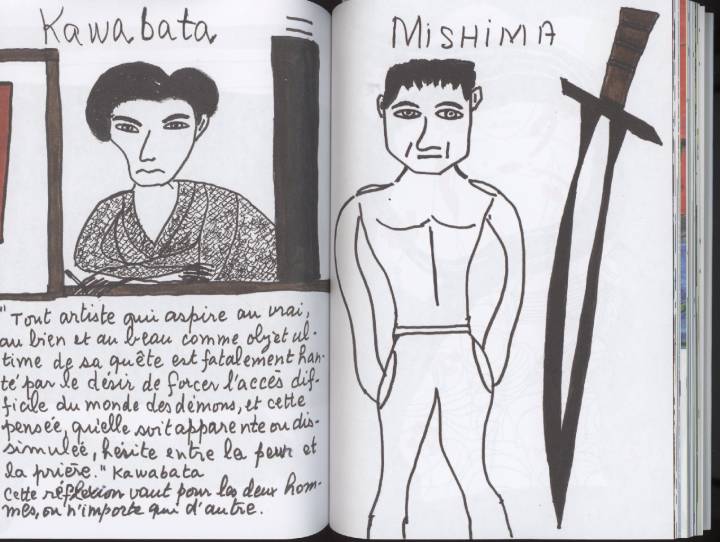 Kawabata
MiSHiMA
"Tout artiste qui aspire au vrai,
au bien et au beau comme objet ul-
time de sa quête est fatalement han-
té par le désir de forcer l'accès dif-
ficile du monde des démons, et cette
pensée, qu'elle soit apparente ou dis-
simulée, hésite entre la peur et
la prière." Kawabata
cette réflexion vaut pour les deux hom-
mes, ou n'importe qui d'autre.